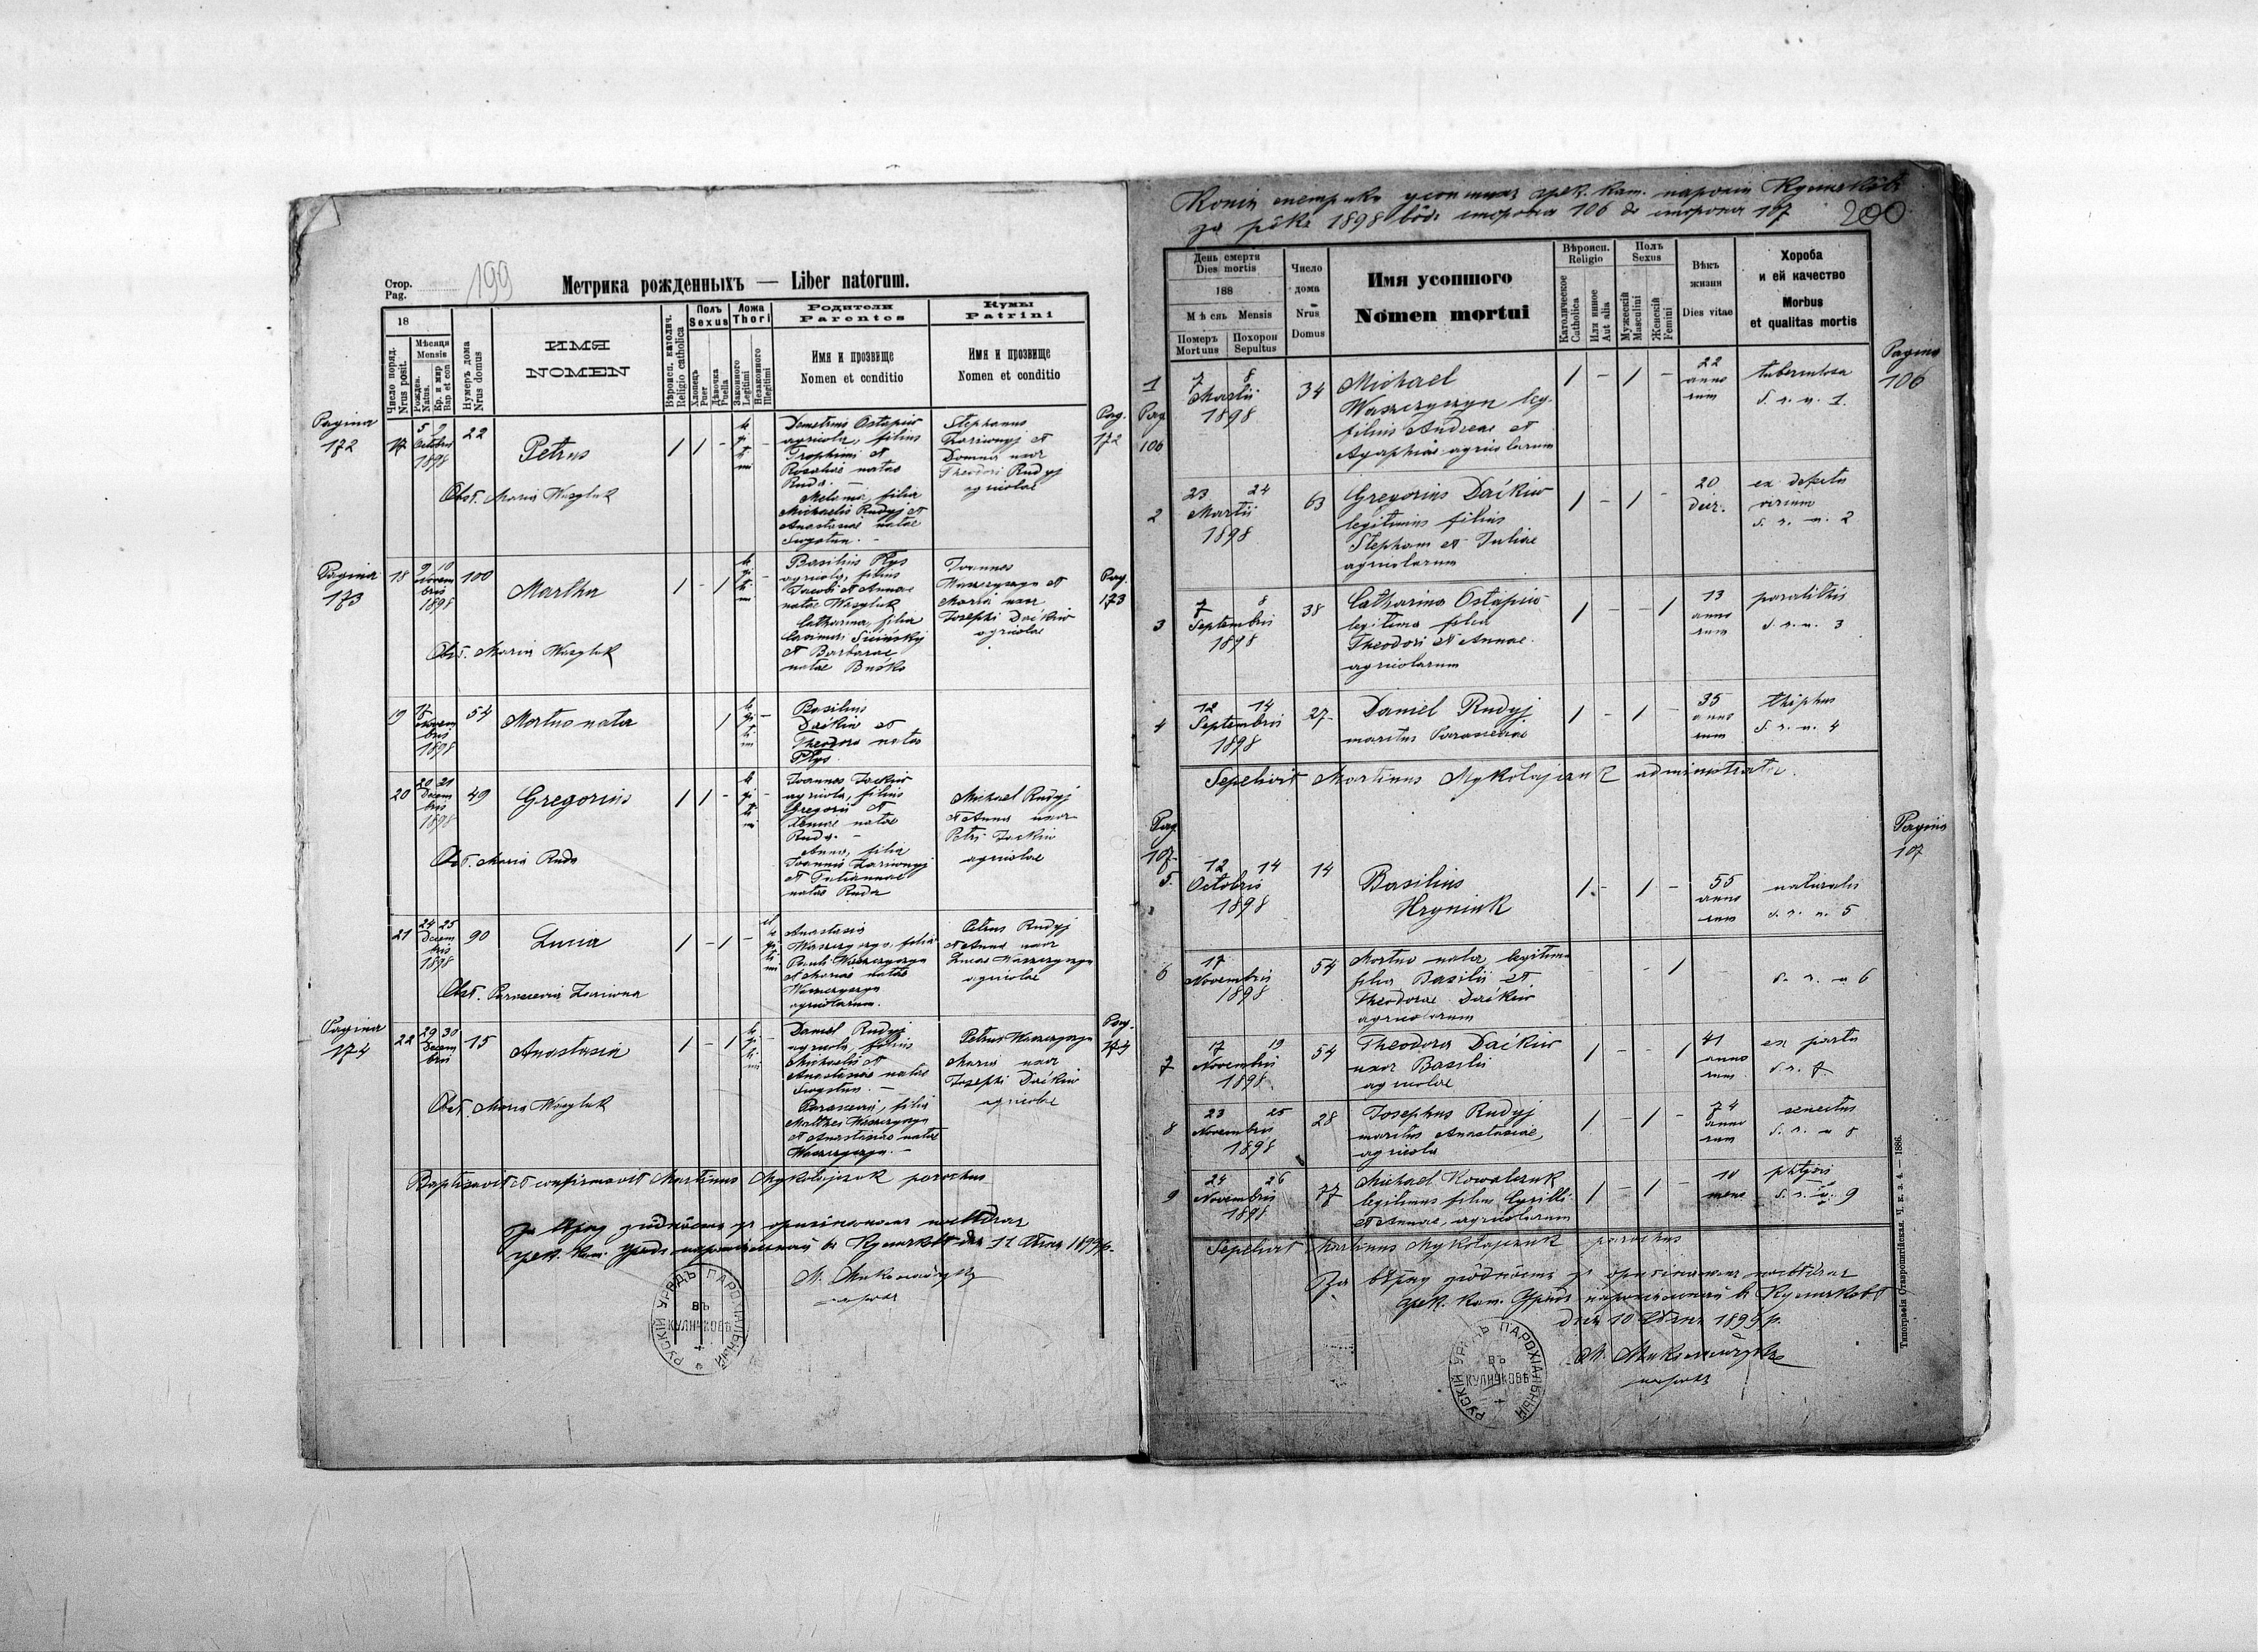 Стор.
Pag.
199
Метрика рожденныхъ — Liber natorum.
18
Число поряд.
Nrus posit.
Мѣсяця
Mensis
Рожден.
Natus.
Кр. и мѵр
Bap et con
Нумеръ дома
Nrus domus
ИМЯ
NOMEN
Вѣроисп. католич.
Religio catholica
Полъ
Sexus
Хлопець
Puer
Дѣвочка
Puella
Ложа
Thori
Законного
Legitimi
Незаконного
Illegitimi
Родители
Parentes
Имя и прозвище
Nomen et conditio
Кумы
Patrini
Имя и прозвище
Nomen et conditio
Pagina
172
17
5 9
Octobris
1898
22
Petrus
/ / - legitimi -
Demetrius Ostapiw
agricola, filius
Trophimi et
Rosaliae natae
Ruda. —
Melania, filia
Michaelis Rudyj et
Anastasiae natae
Stephanus
Zariwnyj et
Domna uxor
Theodori Rudyj
agricolae
Pag.
172
Obst. Maria Wasyluk
Pagina
173
18
9 10
Novem
bris
1898
100
Martha
/ - / legitimi -
Basilius Plys
agricola, filius
Jacobi et Annae
natae Wasyluk
Catharina, filia
Casimiri
et Barbarae
natae
Joannes
Waszczyszyn et
Maria uxor
Josephi Daćkiw
agricolae
Pag.
173
Obst. Maria Wasyluk
19
17
Novem
bris
1898
54
Mortuo nata
/ legitimi -
Basilius
Daćkiw et
Theodora natae
Plys
20
20 21
Decem
bris
1898
49
Gregorius
/ / - legitimi -
Joannes Jackiw
agricola, filius
Gregorii et
Xeniae natae
Ruda. —
Anna, filia
Joannis Zariwnyj
et Juliannae
natae Ruda
Michael Rudyj
et Anna uxor
Petri Jackiw
agricolae
Obst. Maria Ruda
21
24 25
Decem
bris
1898
90
Lucia
/ - / - illegitimi
Anastasia
Waszczyszyn, filia
Pauli Waszczyszyn
et Mariae natae
Waszczyszyn
agricolarum.
Petrus Rudyj
et Anna uxor
Lucae Waszczyszyn
agricolae
Obst. Parascevia Zariwna
Pagina
174
22
29 30
Decem
bris
15
Anastasia
/ - / legitimi -
Daniel Rudyj
agricola, filius
Michaelis et
Anastasiae natae
Parascevia, filia
Matthei Waszczyszyn
et Anastasiae natae
Waszczyszyn. —
Petrus Waszczyszyn
Maria uxor
Josephi Daćkiw
agricolae
Pag.
174
Obst. Maria Wasyluk
Baptisavit et confirmavit Martinus Mykołajczuk parochus
За вѣрну
грек. кат. Куличковѣ дня 11 1899 р.
М. Миколайчук
парох
РУСКІЙ УРЯДЪ ПАРОХІАЛЬНЫЙ
ВЪ
КУЛИЧКОВѢ
Копія метрики усопшихъ грек. кат. парохіи Куличковѣ
за рôкъ 1898 вôдъ сторона 106 до сторона 107
200
День смерти
Dies mortis
188
Мѣсяь Mensis
Номеръ
Mortuus
Похорон
Sepultus
Число
дома
Nrus
Domus
Имя усопшого
Nomen mortui
Вѣроисп.
Religio
Католическое
Catholica
Или инное
Aut alia
Полъ
Sexus
Мужескій
Masculini
Женскій
Femini
Вѣкъ
жизни
Dies vitae
Хороба
и ей качество
Morbus
et qualitas mortis
1
Pag.
106
7 8
Martii
1898
34
Michael
Waszczyszyn leg.
filius Andreae et
Agaphiae agricolarum
/ - / -
22
anno
rum
tuberculosa
s. r. n. 1.
Pagina
106
2
23 24
Martii
1898
63
Gregorius Daćkiw
legitimus filius
Stephani et Juliae
agricolarum
/ - / -
20
dier.
ex defectu
virium
s. r. n. 2
3
7 8
Septembris
1898
38
Catharina Ostapiw
legitima filia
Theodori et Annae
agricolarum
/ - - /
13
anno
rum
paralitis
s. r. n. 3
4
12 14
Septembris
1898
27
Daniel Rudyj
maritus Parasceviae
/ - / -
35
anno
rum
thiphus
s. r. n. 4
Sepelivit Martinus Mykołajczuk administrator.
Pag.
107
5.
12 14
Octobris
1898
14
Basilius
Hryniuk
/ - / -
55
anno
rum
naturalis
s. r. n. 5
Pagina
107
6
17
Novembris
1898
54
Mortuo nata legitima
filia Basilii et
Theodorae Daćkiw
agricolarum
- /
s. r. n 6
7
17 19
Novembris
1898
54
Theodora Daćkiw
uxor Basilii
agricolae
/ - - /
41
anno
rum
ex partu
s. r. 7.
8
23 25
Novembris
1898
28
Josephus Rudyj
maritus Anastasiae,
agricola
/ - / -
74
anno
rum
senectus
s. r. n 8
9
24 26
Novembris
1898
77
Michael Kowalczuk
legitimus filius Cyrilli
et Annae, agricolarum
/ - / -
10
mens
phtysis
s. r. n. 9
Sepelivit Martinus Mykołajczuk parochus
За вѣрну
грек. кат. Куличковѣ
дня 10 1899 р.
М. Миколайчук
парох
РУСКІЙ УРЯДЪ ПАРОХІАЛЬНЫЙ
ВЪ
КУЛИЧКОВѢ
Типографія Ставропигійская. Ч. к. з. 4. — 1886.